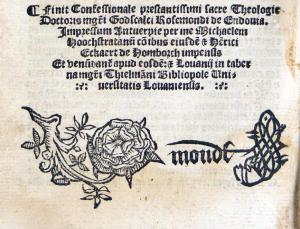 ¶ Finit Confessionale prestantissimi sacre Theologie
Doctoris mgr̃i Godscalci Rosemondi de Endouia.
Impressum Antuerpie per me Michaelem
Hoochstratanũ cõibus eiusdẽ & Hẽrici
Eckaert de Homborch impensis
Et venũdant̃ apud eosdẽ: & Louanij in taber
na mgr̃i Thielmãni Bibliopole Uni
uersitatis Louaniensis.
monde